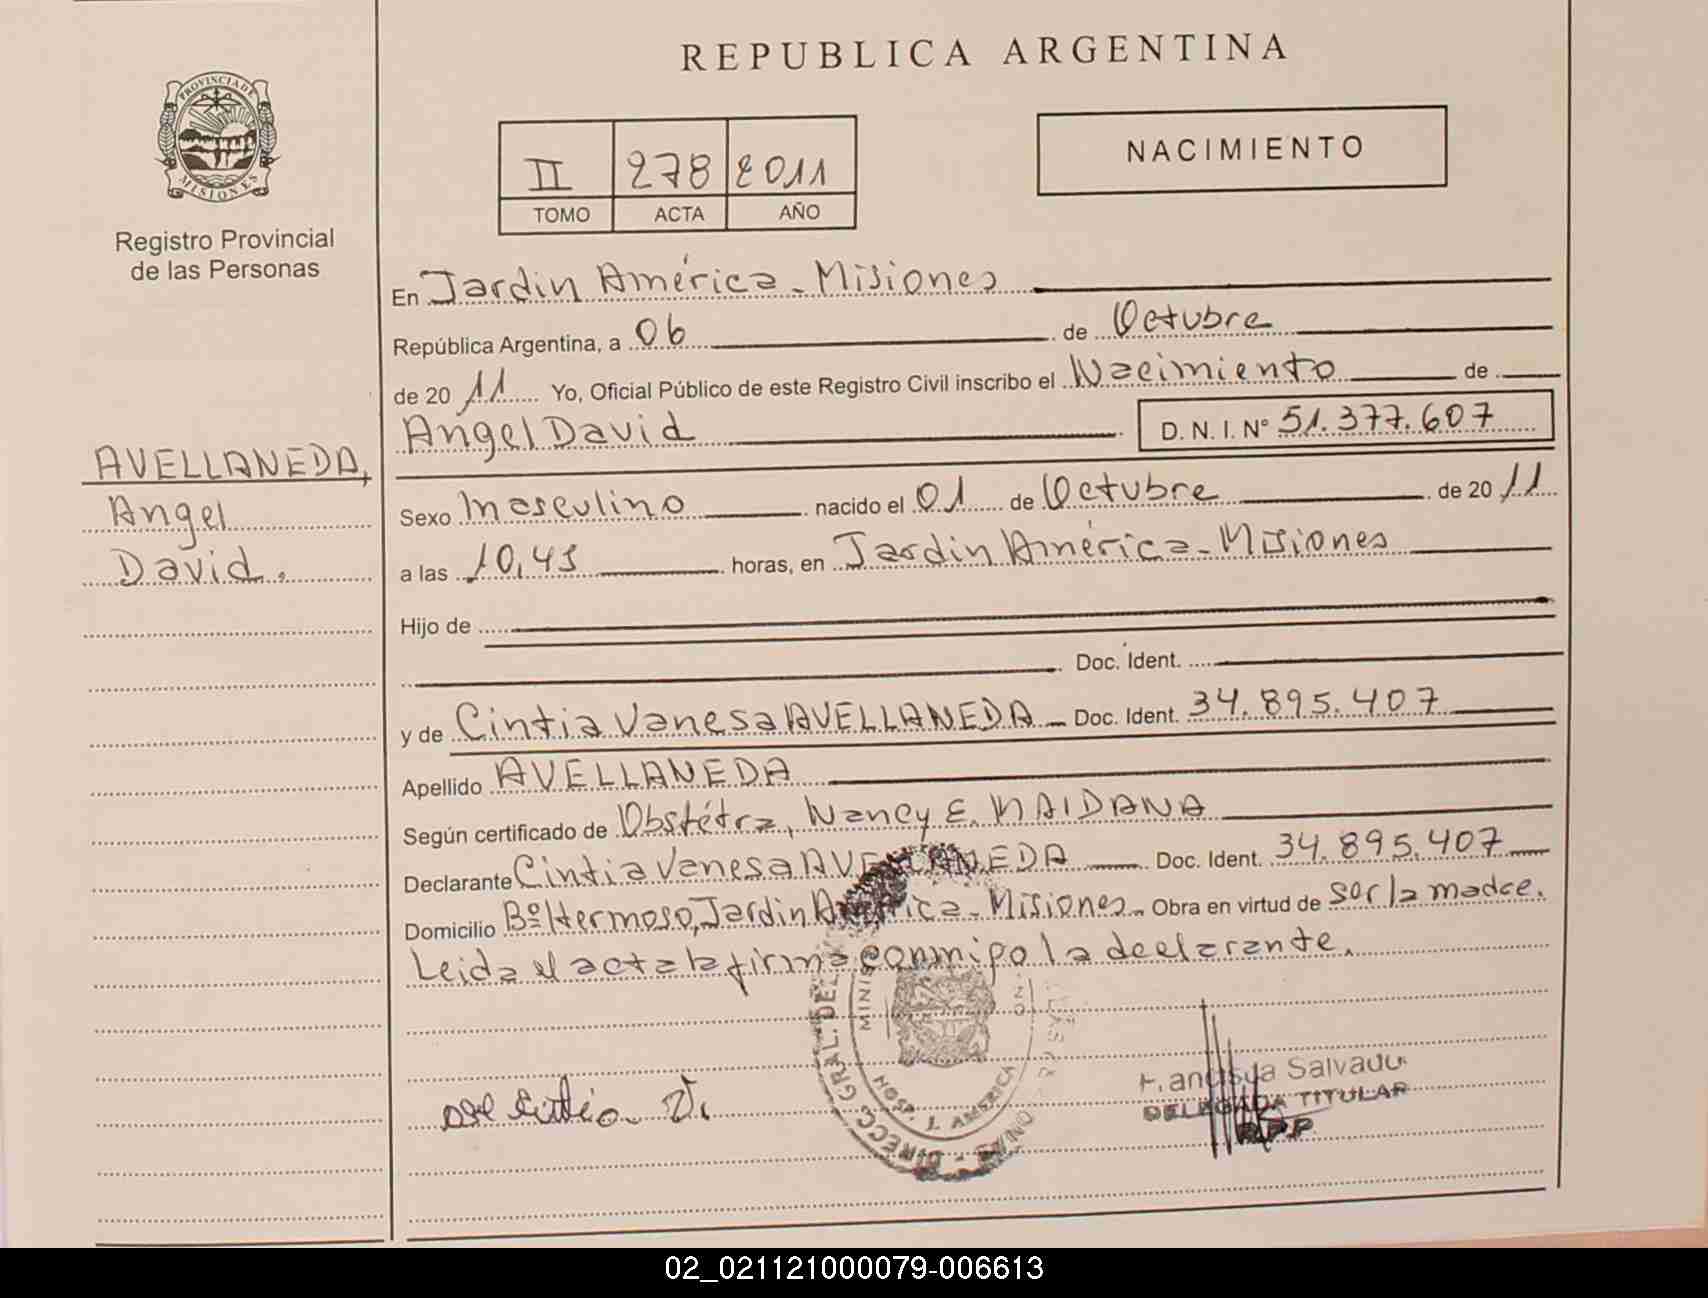 REPUBLICA ARGENTINA
PROVINCIA DE
MISIONES
Registro Provincial
de las Personas
II 278 2011
TOMO ACTA AÑO
NACIMIENTO
AVELLANEDA,
Angel
David.
En Jardin América - Misiones
República Argentina, a 06 de Octubre
de 2011 Yo, Oficial Público de este Registro Civil inscribo el Nacimiento de
Angel David D. N. I. Nº 51.377.607
Sexo Masculino nacido el 01 de Octubre de 2011
a las 10,45 horas, en Jardin América - Misiones
Hijo de
Doc. Ident.
y de Cintia Vanesa AVELLANEDA - Doc. Ident. 34.895.407
Apellido AVELLANEDA
Según certificado de Obstétra, Nancy E. MAIDANA
Declarante Cintia Vanesa AVELLANEDA Doc. Ident. 34.895.407
Domicilio Bº Hermoso, Jardin América - Misiones - Obra en virtud de ser la madre.
Leida el acta la firma conmigo la declarante.
DIRECC. GRAL. DEL
MINIS
HOSP. J. AMERICA
Salvador
DELEGADA TITULAR
RPP
02_021121000079-006613